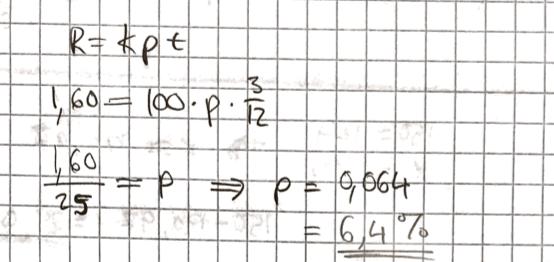 R = k p t
1,60 = 100 · p · 3/12
1,60/25 = p ⇒ p = 0,064
= 6,4%